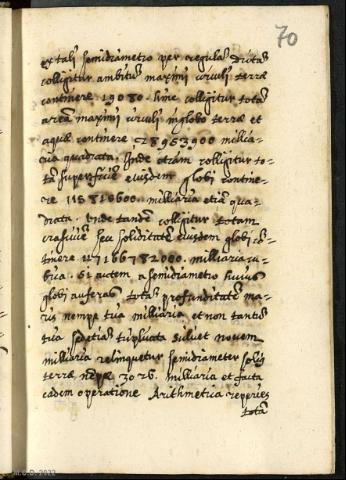 70
ex tali semidiametro per regulas dictas
colligitur ambitus maximi circuli terræ
continere 19080. hinc colligitur tota
area maximi circuli in globo terræ et
aquæ continere 28953900 millia-
ria quadrata. Unde etiam colligitur to-
ta superficies eiusdem globi contine-
re 115815600. milliaria etia qua-
drata. Unde tandem colligitur totam
crasitiem seu soliditatem eiusdem globi co-
tinere 1171667 82000. milliaria cu-
bica. Si autem a semidiametro huius
globi auferas totas profunditates ma-
ris nempe tria milliaria et non tantum
tria sed etiam triplicata scilicet novem
milliaria relinquetur semidiameter solis
terræ nempe 3026. milliaria et facta
eadem operatione Arithmetica reperies
tota